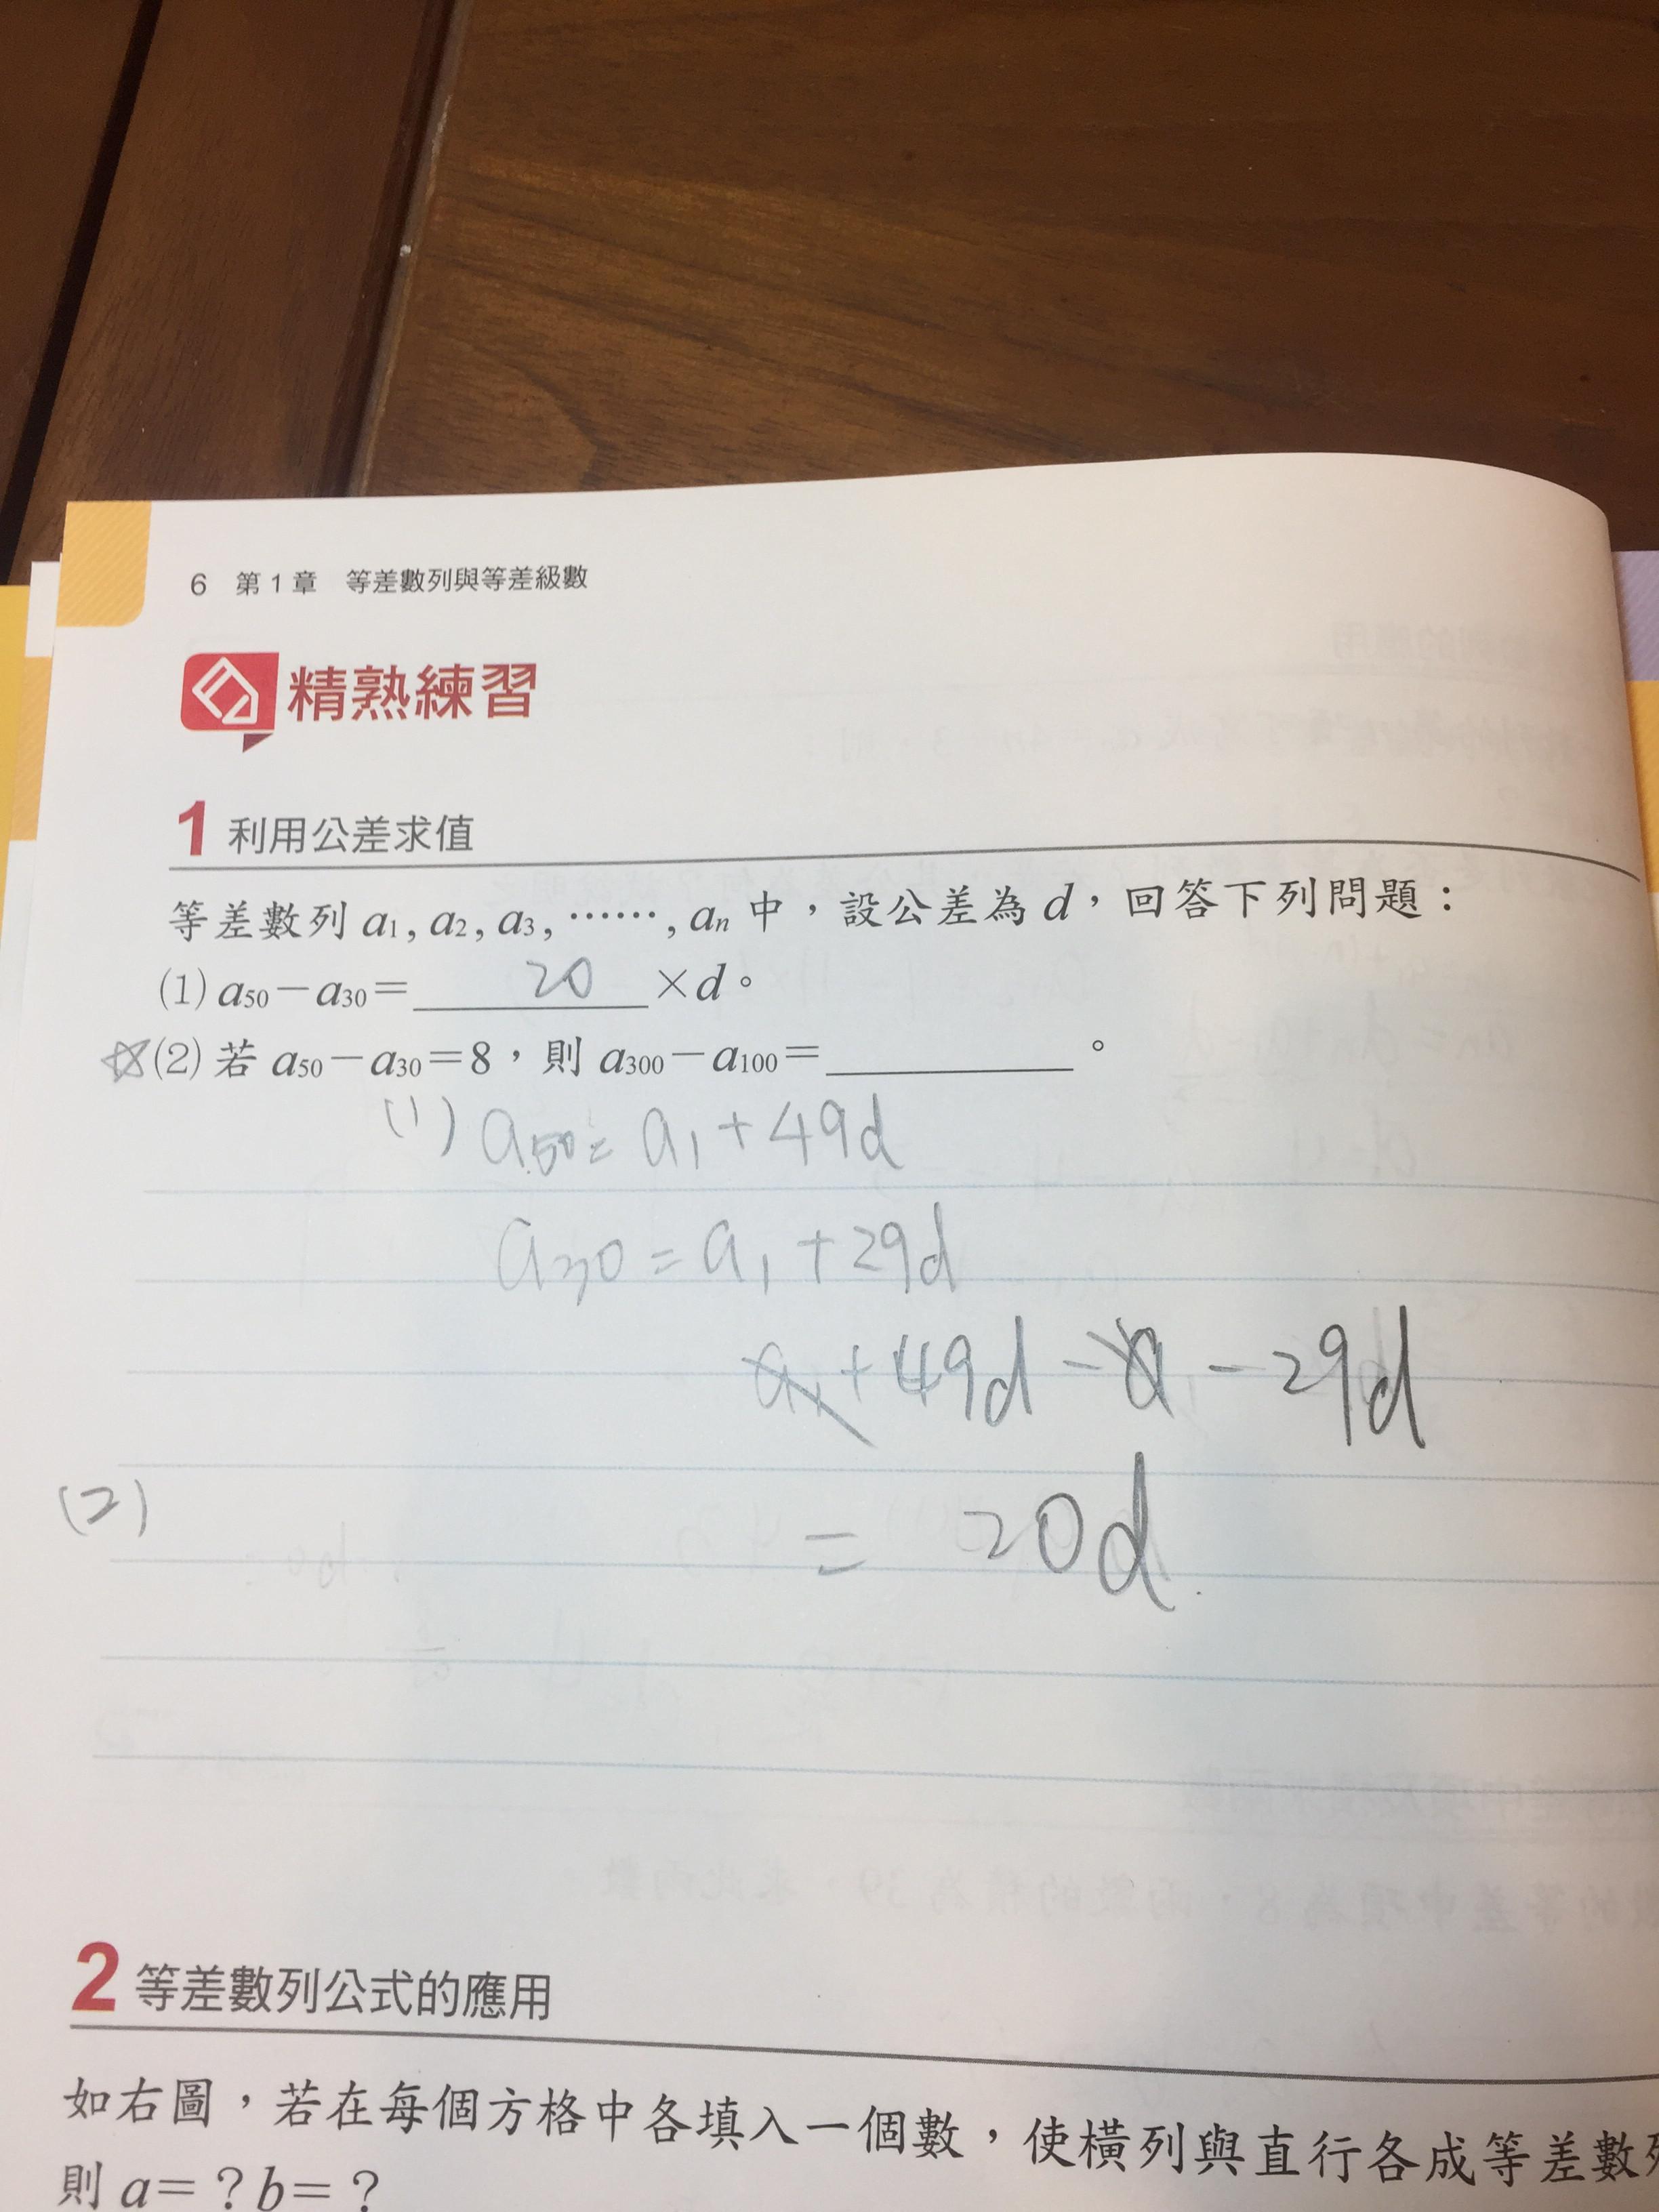 6 第1章 等差數列與等差級數
精熟練習
1 利用公差求值
等差數列 a1, a2, a3, ……, an 中，設公差為 d，回答下列問題：
(1) a50－a30＝ 20 ×d。
☆(2) 若 a50－a30＝8，則 a300－a100＝________。
(1) a50 = a1 + 49d
a30 = a1 + 29d
a1 + 49d - a1 - 29d
(2)
= 20d.
2 等差數列公式的應用
如右圖，若在每個方格中各填入一個數，使橫列與直行各成等差數列
則 a＝？b＝？